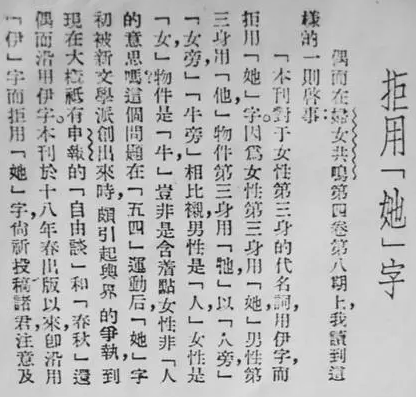 拒用「她」字
偶而在婦女共鳴第四卷第八期上,我讀到這
樣的一則啓事:
「本刊對于女性第三身的代名詞,用伊字,而
拒用「她」字,因爲女性第三身用「她」男性第
三身用「他」物件第三身用「牠」以「人旁」
「女旁」「牛旁」相比襯,男性是「人」女性是
「女」物件是「牛」豈非是含着點女性非「人
的意思嗎?這個問題在「五四」運動后,「她」字
初被新文學派創出來時,頗引起輿界的爭執,到
現在大槪祇有申報的「自由談」和「春秋」還
偶而沿用伊字,本刊於十八年春出版以來,卽沿用
「伊」字而拒用「她」字,尙祈投稿諸君注意及